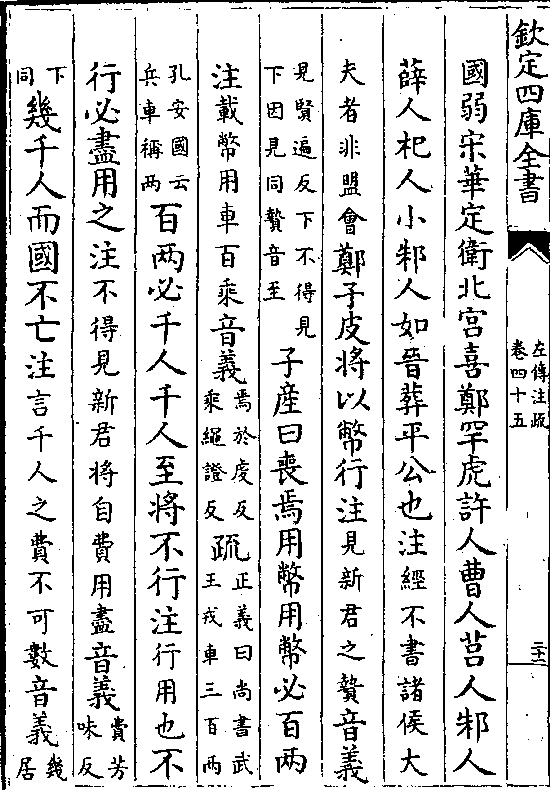 欽定四庫全書
左傳注疏
卷四十五
三十一
國弱宋華定衛北宮喜鄭罕虎許人曹人莒人邾人
薛人杞人小邾人如晉葬平公也注經不書諸侯大
夫者非盟會鄭子皮將以幣行注見新君之贄音義
見賢遍反下不得見
下因見同贄音至
子產曰喪焉用幣用幣必百兩
注載幣用車百乘音義
焉於虔反
乘繩證反
疏
正義曰尚書武
王戎車三百兩
孔安國云
兵車稱兩
百兩必千人千人至將不行注行用也不
行必盡用之注不得見新君將自費用盡音義
費芳
味反
下
同
幾千人而國不亡注言千人之費不可數音義
幾
居